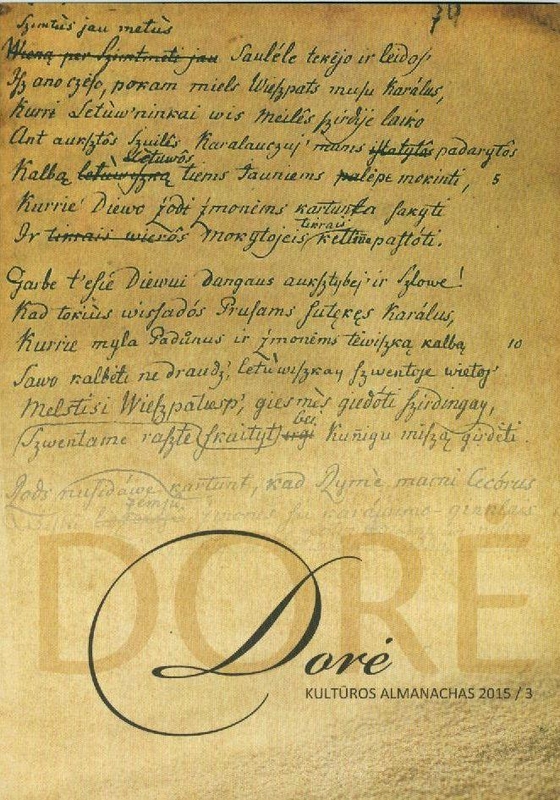 79
Szimtùs jau metùs
Wieną per Szimtmeti jau Saulėle tekėjo ir leidos'
Isz ano czėso, pokam miels Wieszpats musu Karálus,
Kurri Letùw'ninkai wis meilês szirdije laiko
Ant auksztôs Szuilês Karalauczuj' mums isstatytôs padarytôs
Lietuwôs
Kalbą letùwiszką tiems Jauniems palėpe mokinti, 5
Kurrie' Diewo żodį żmonėms kartunta sakyti
tikrais
Ir tikrais wierôs Mokytojeis pastoti.
Garbe t'esie Diewui dangaus auksztybej' ir Szlowe!
Kad tokiùs wissadós Prusams sutękęs Karálus,
Kurrie myla Padūnus ir żmonėms tėwiszką kalbą 10
Sawo kalbėti ne draudż', letùwiszkay szwentoje wietoj'
Melstisi Wieszpatiesp', giesmės giedóti szirdingay,
bei
Szwentame raszte skaityt' irgi Kunigu miszą girdėti.
Rods nusidáwe kartunt, kad Rymė macni Cecórus
Żemju
DORĖ
Dorė
KULTŪROS ALMANACHAS 2015 / 3